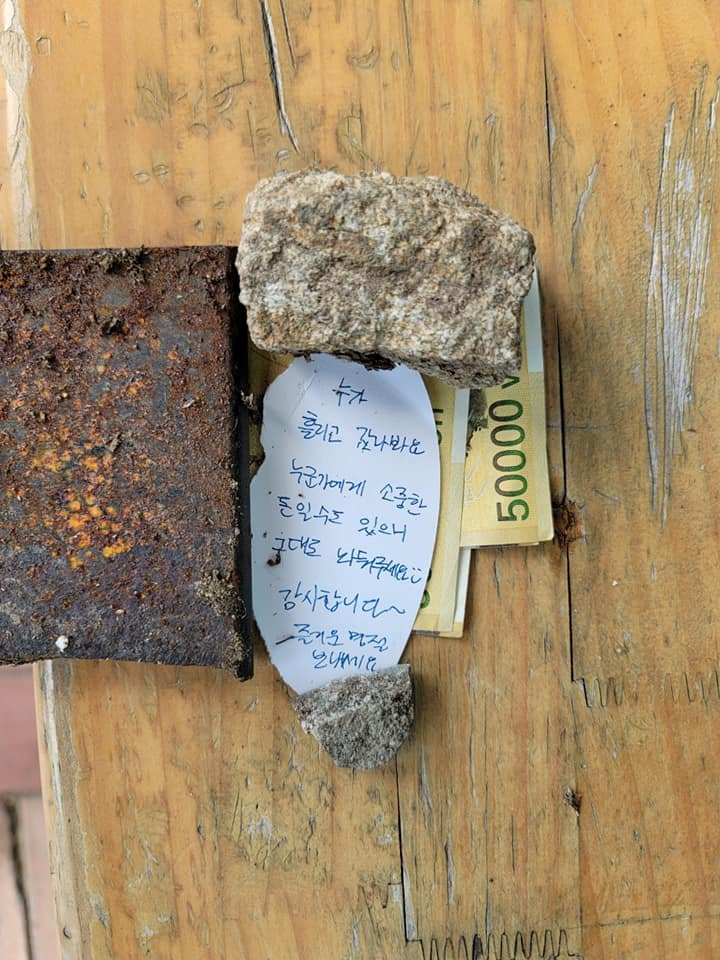 누가
흘리고 갔나봐요
누군가에게 소중한
돈일수도 있으니
그대로 놔둬주세요
감사합니다~
즐거운 명절
보내세요
50000